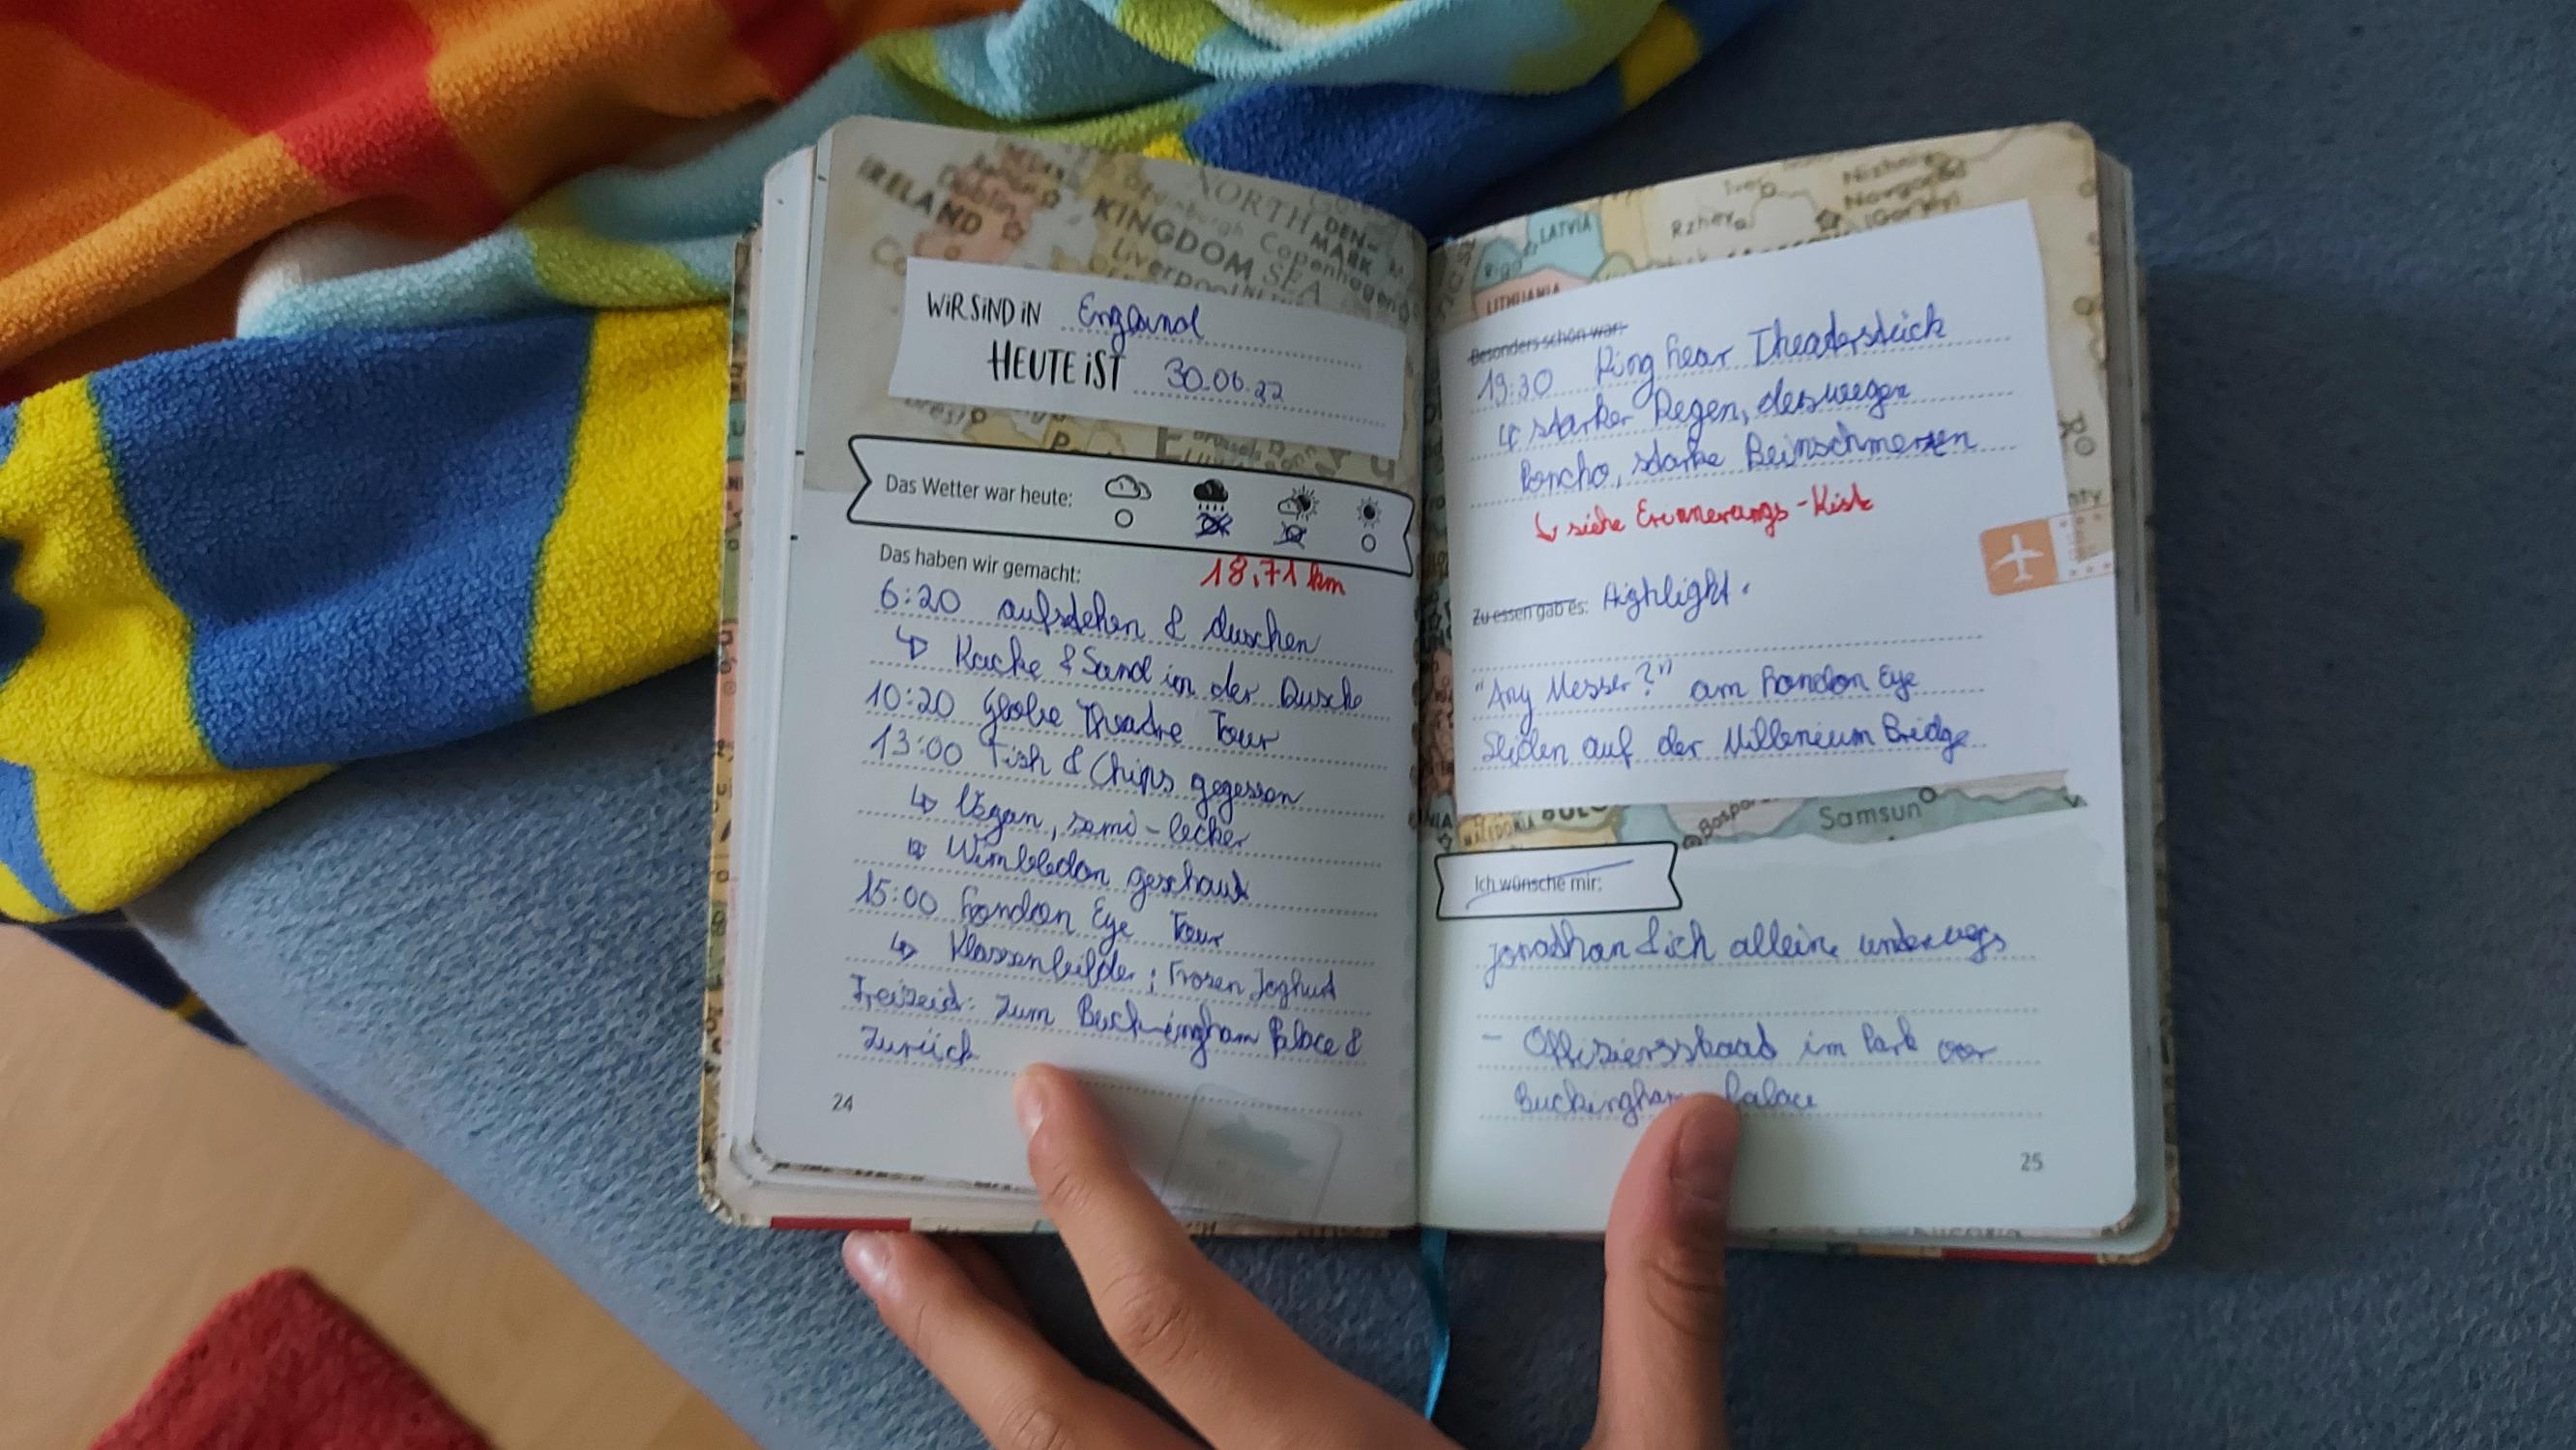 IRELAND
Dublin
KINGDOM
Liverpool
NORTH
SEA
DEN-
MARK
Copenhagen
WIR SIND IN England
HEUTE IST 30.06.22
Das Wetter war heute:
Das haben wir gemacht: 18,71 km
6:20 aufstehen & duschen
↳ Kacke & Sand in der Dusche
10:20 Globe Theatre Tour
13:00 Fish & Chips gegessen
↳ Vegan, semi-lecker
↳ Wimbledon geschaut
15:00 London Eye Tour
↳ Klassenbilder; Frozen Joghurt
Freizeit: Zum Buckingham Palace &
zurück
24
LATVIA
Riga
LITHUANIA
Rzhev
Nizhniy
Novgorod
(Gor'kiy)
Besonders schön war:
19:30 King Lear Theaterstück
↳ starker Regen, deswegen
Poncho, starke Beinschmerzen
↳ siehe Erinnerungs-Kiste
Zu essen gab es: Highlight:
"Any Messer?" am London Eye
Sliden auf der Millenium Bridge
MACEDONIA
Samsun
Ich wünsche mir:
Jonathan & ich alleine unterwegs
- Offiziersstaat im Park vor
Buckingham Palace
25